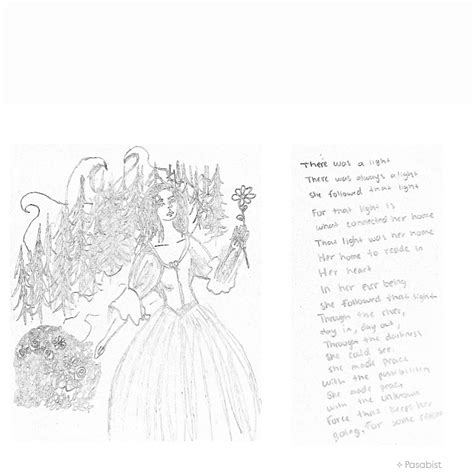 There was a light
There was always a light
She followed that light
For that light is
what connected her home
That light was her home
Her home to reside in
Her heart
In her ever being
She followed that light
Through the river,
day in, day out,
Through the darkness
She could see.
She made peace
with the possibilities
She made peace
with the unknown
Force that keeps her
going. For some reason
Pasabist